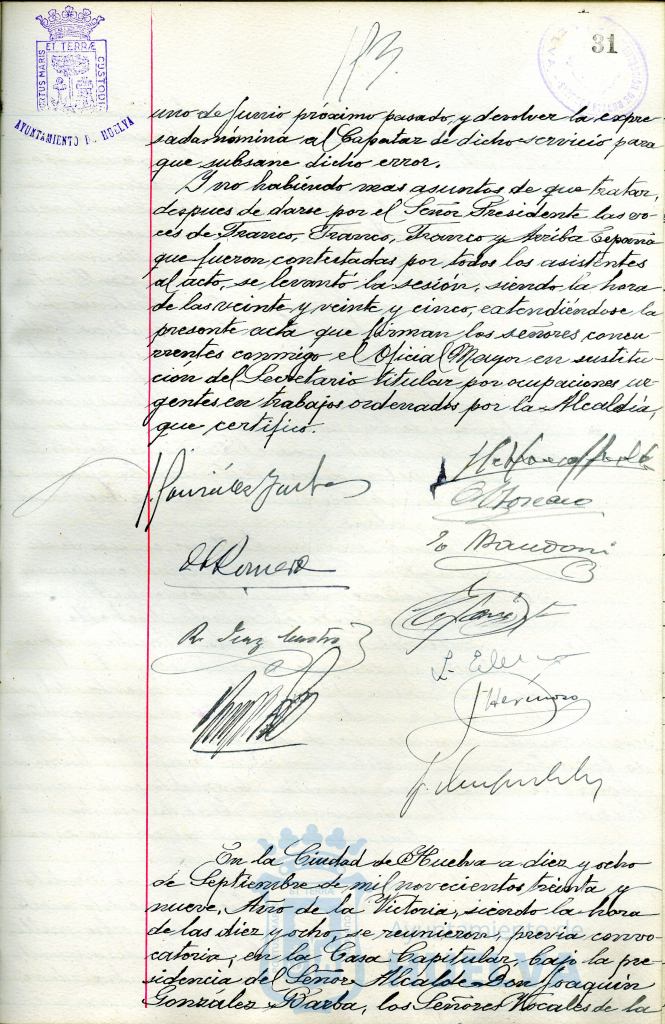 PORTUS MARIS ET TERRÆ CUSTODIA
AYUNTAMIENTO DE HUELVA
113.
31
uno de Junio próximo pasado, y devolver la expre-
sada nómina al Capataz de dicho servicio para
que subsane dicho error.
Y no habiendo mas asuntos de que tratar,
despues de darse por el Señor Presidente las vo-
ces de Franco, Franco, Franco y Arriba España
que fueron contestadas por todos los asistentes
al acto, se levantó la sesión, siendo la hora
de las veinte y veinte y cinco, extendiéndose la
presente acta que firman los señores concu-
rrentes conmigo el Oficial Mayor en sustitu-
ción del Secretario titular por ocupaciones ur-
gentes en trabajos ordenados por la Alcaldía,
que certifico.
J. González Barba
Romero
R. Diaz
J. Hermoso
En la Ciudad de Huelva a diez y ocho
de Septiembre de mil novecientos treinta y
nueve, Año de la Victoria, siendo la hora
de las diez y ocho, se reunieron, previa convo-
catoria, en la Casa Capitular, bajo la pre-
sidencia del Señor Alcalde Don Joaquín
González Barba, los Señores Vocales de la
Ayuntamiento de
HUELVA